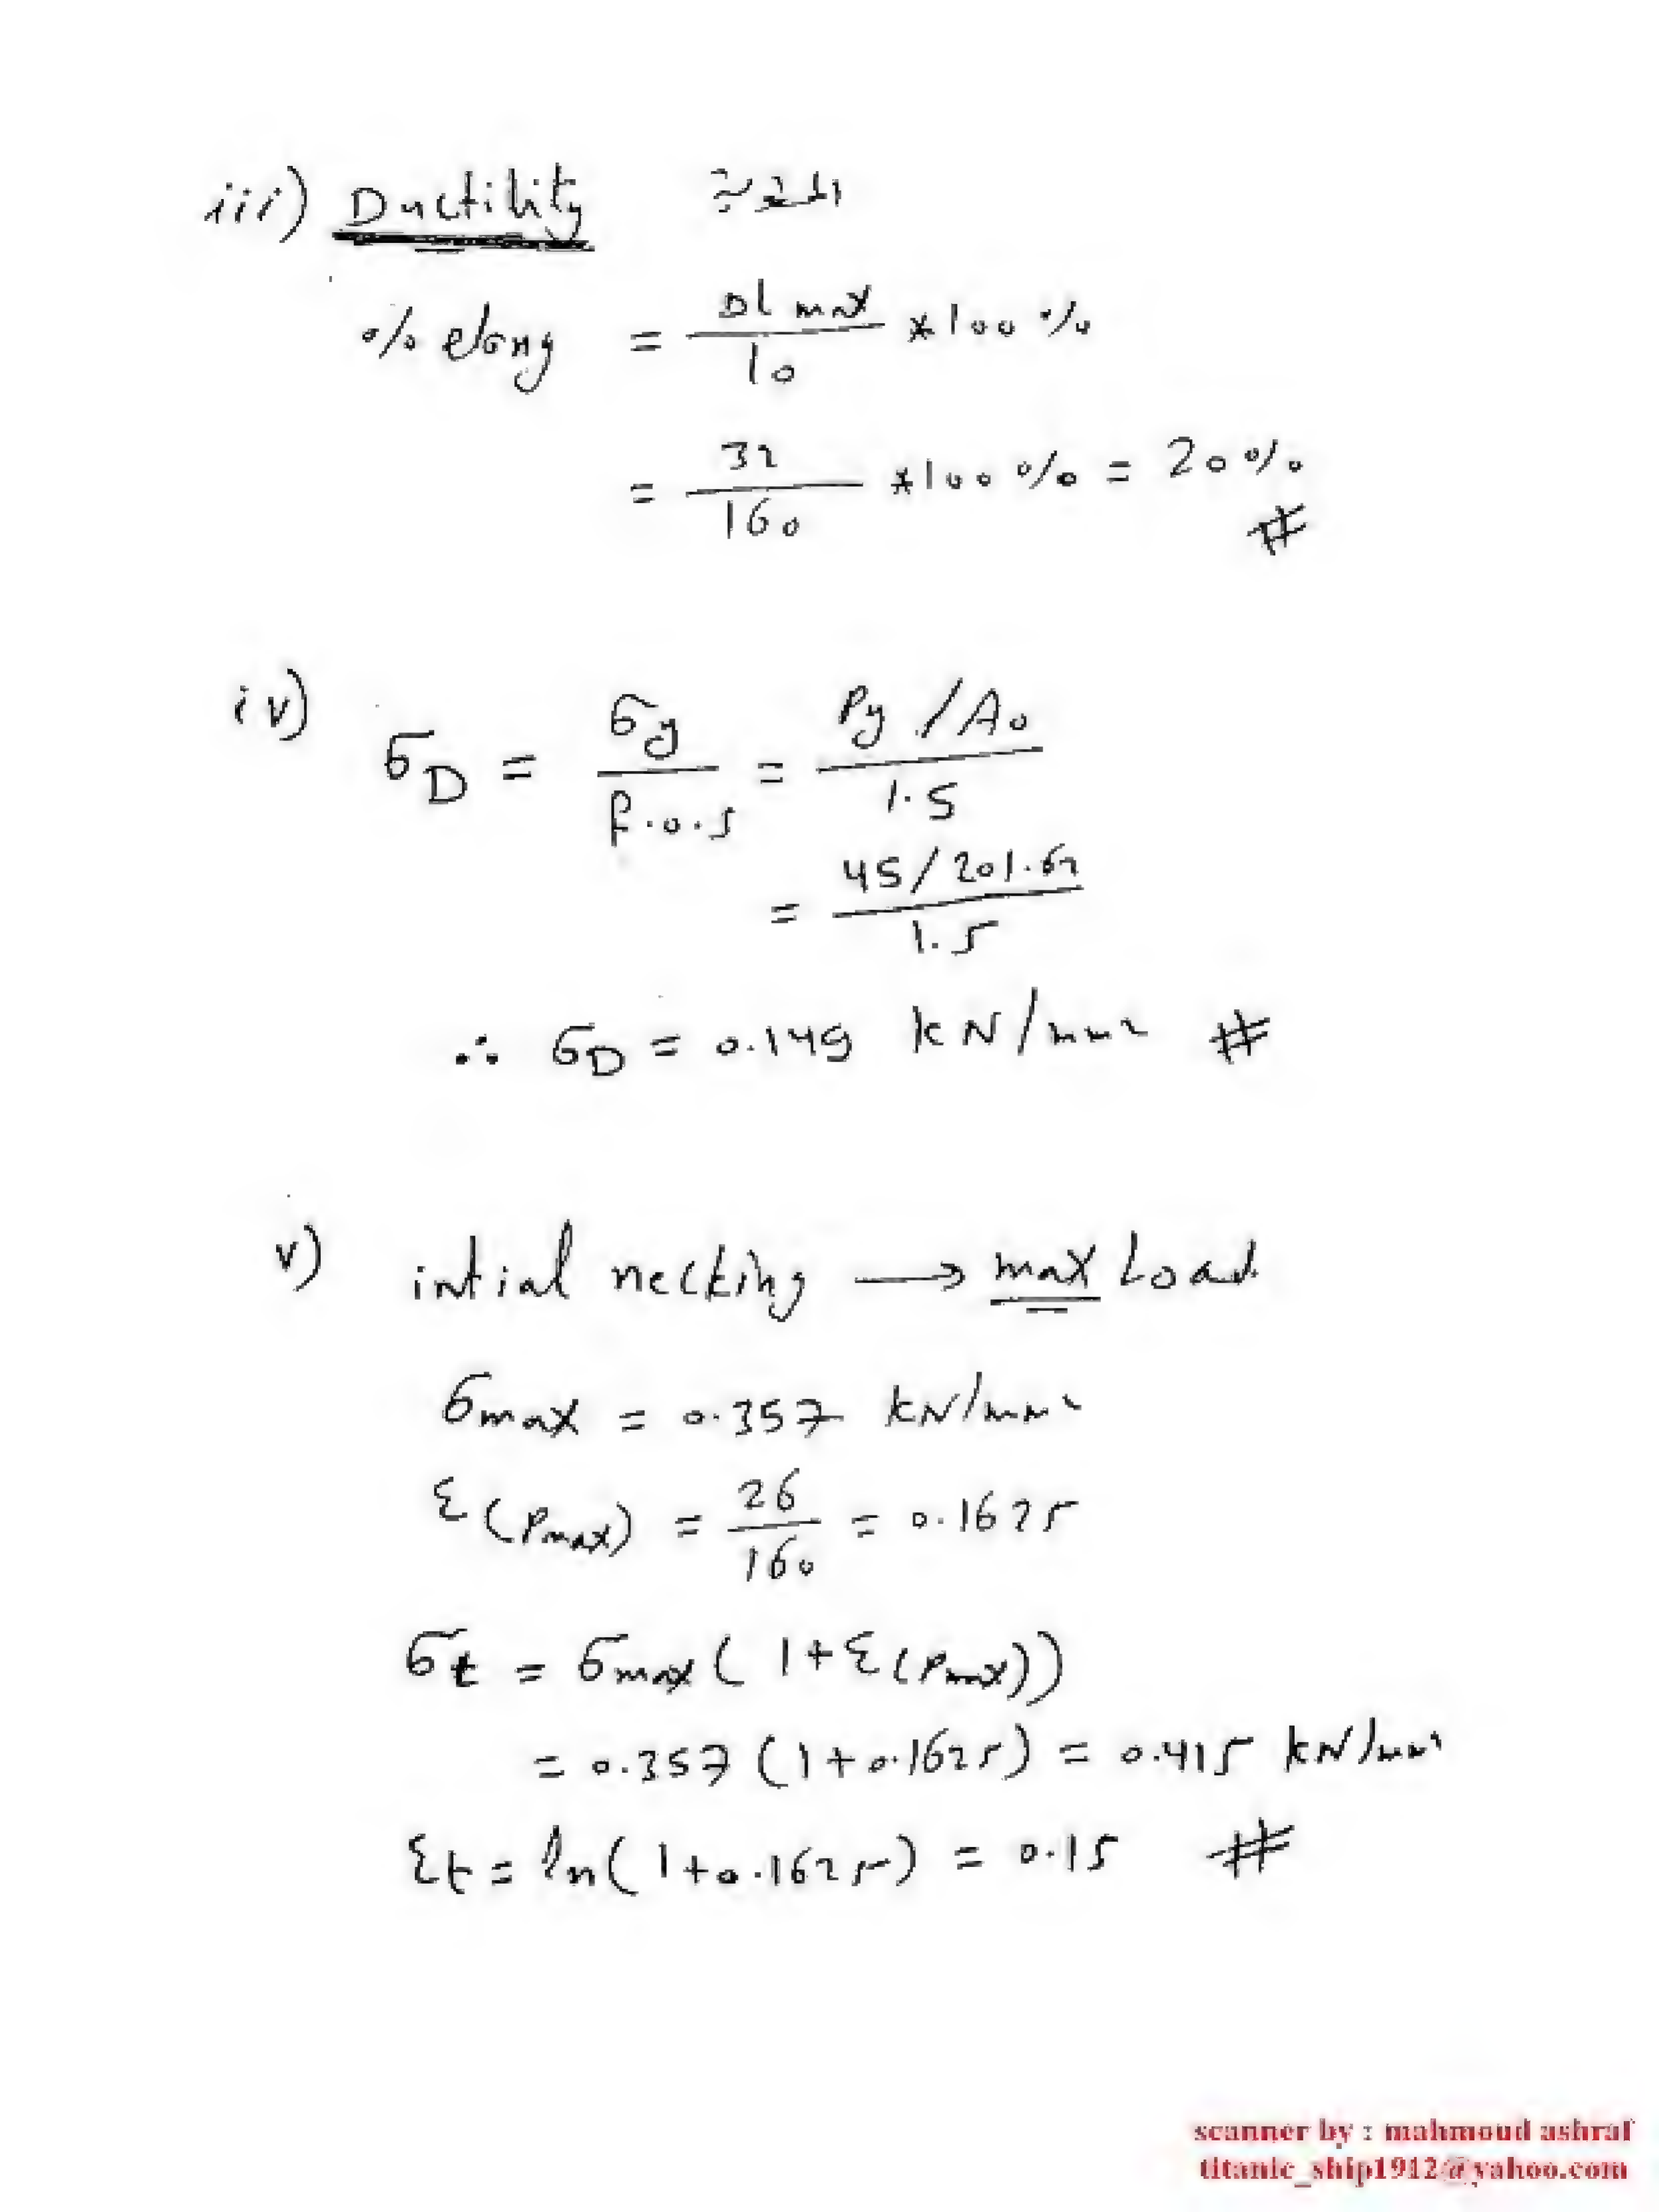 iii) Ductility
% elong = Δl max / lo *100 %
= 32 / 160 *100 % = 20 % #
iv) σD = σy / f.o.s = Py / Ao / 1.5
= 45 / 201.62 / 1.5
∴ σD = 0.149 kN/mm2 #
v) intial necking → max Load
σmax = 0.357 kN/mm2
ε(Pmax) = 26 / 160 = 0.1625
σt = σmax ( 1 + ε(Pmax))
= 0.357 (1 + 0.1625) = 0.415 kN/mm2
εt = ln( 1 + 0.1625) = 0.15 #
scanner by : mahmoud ashraf
titanic_ship1912@yahoo.com